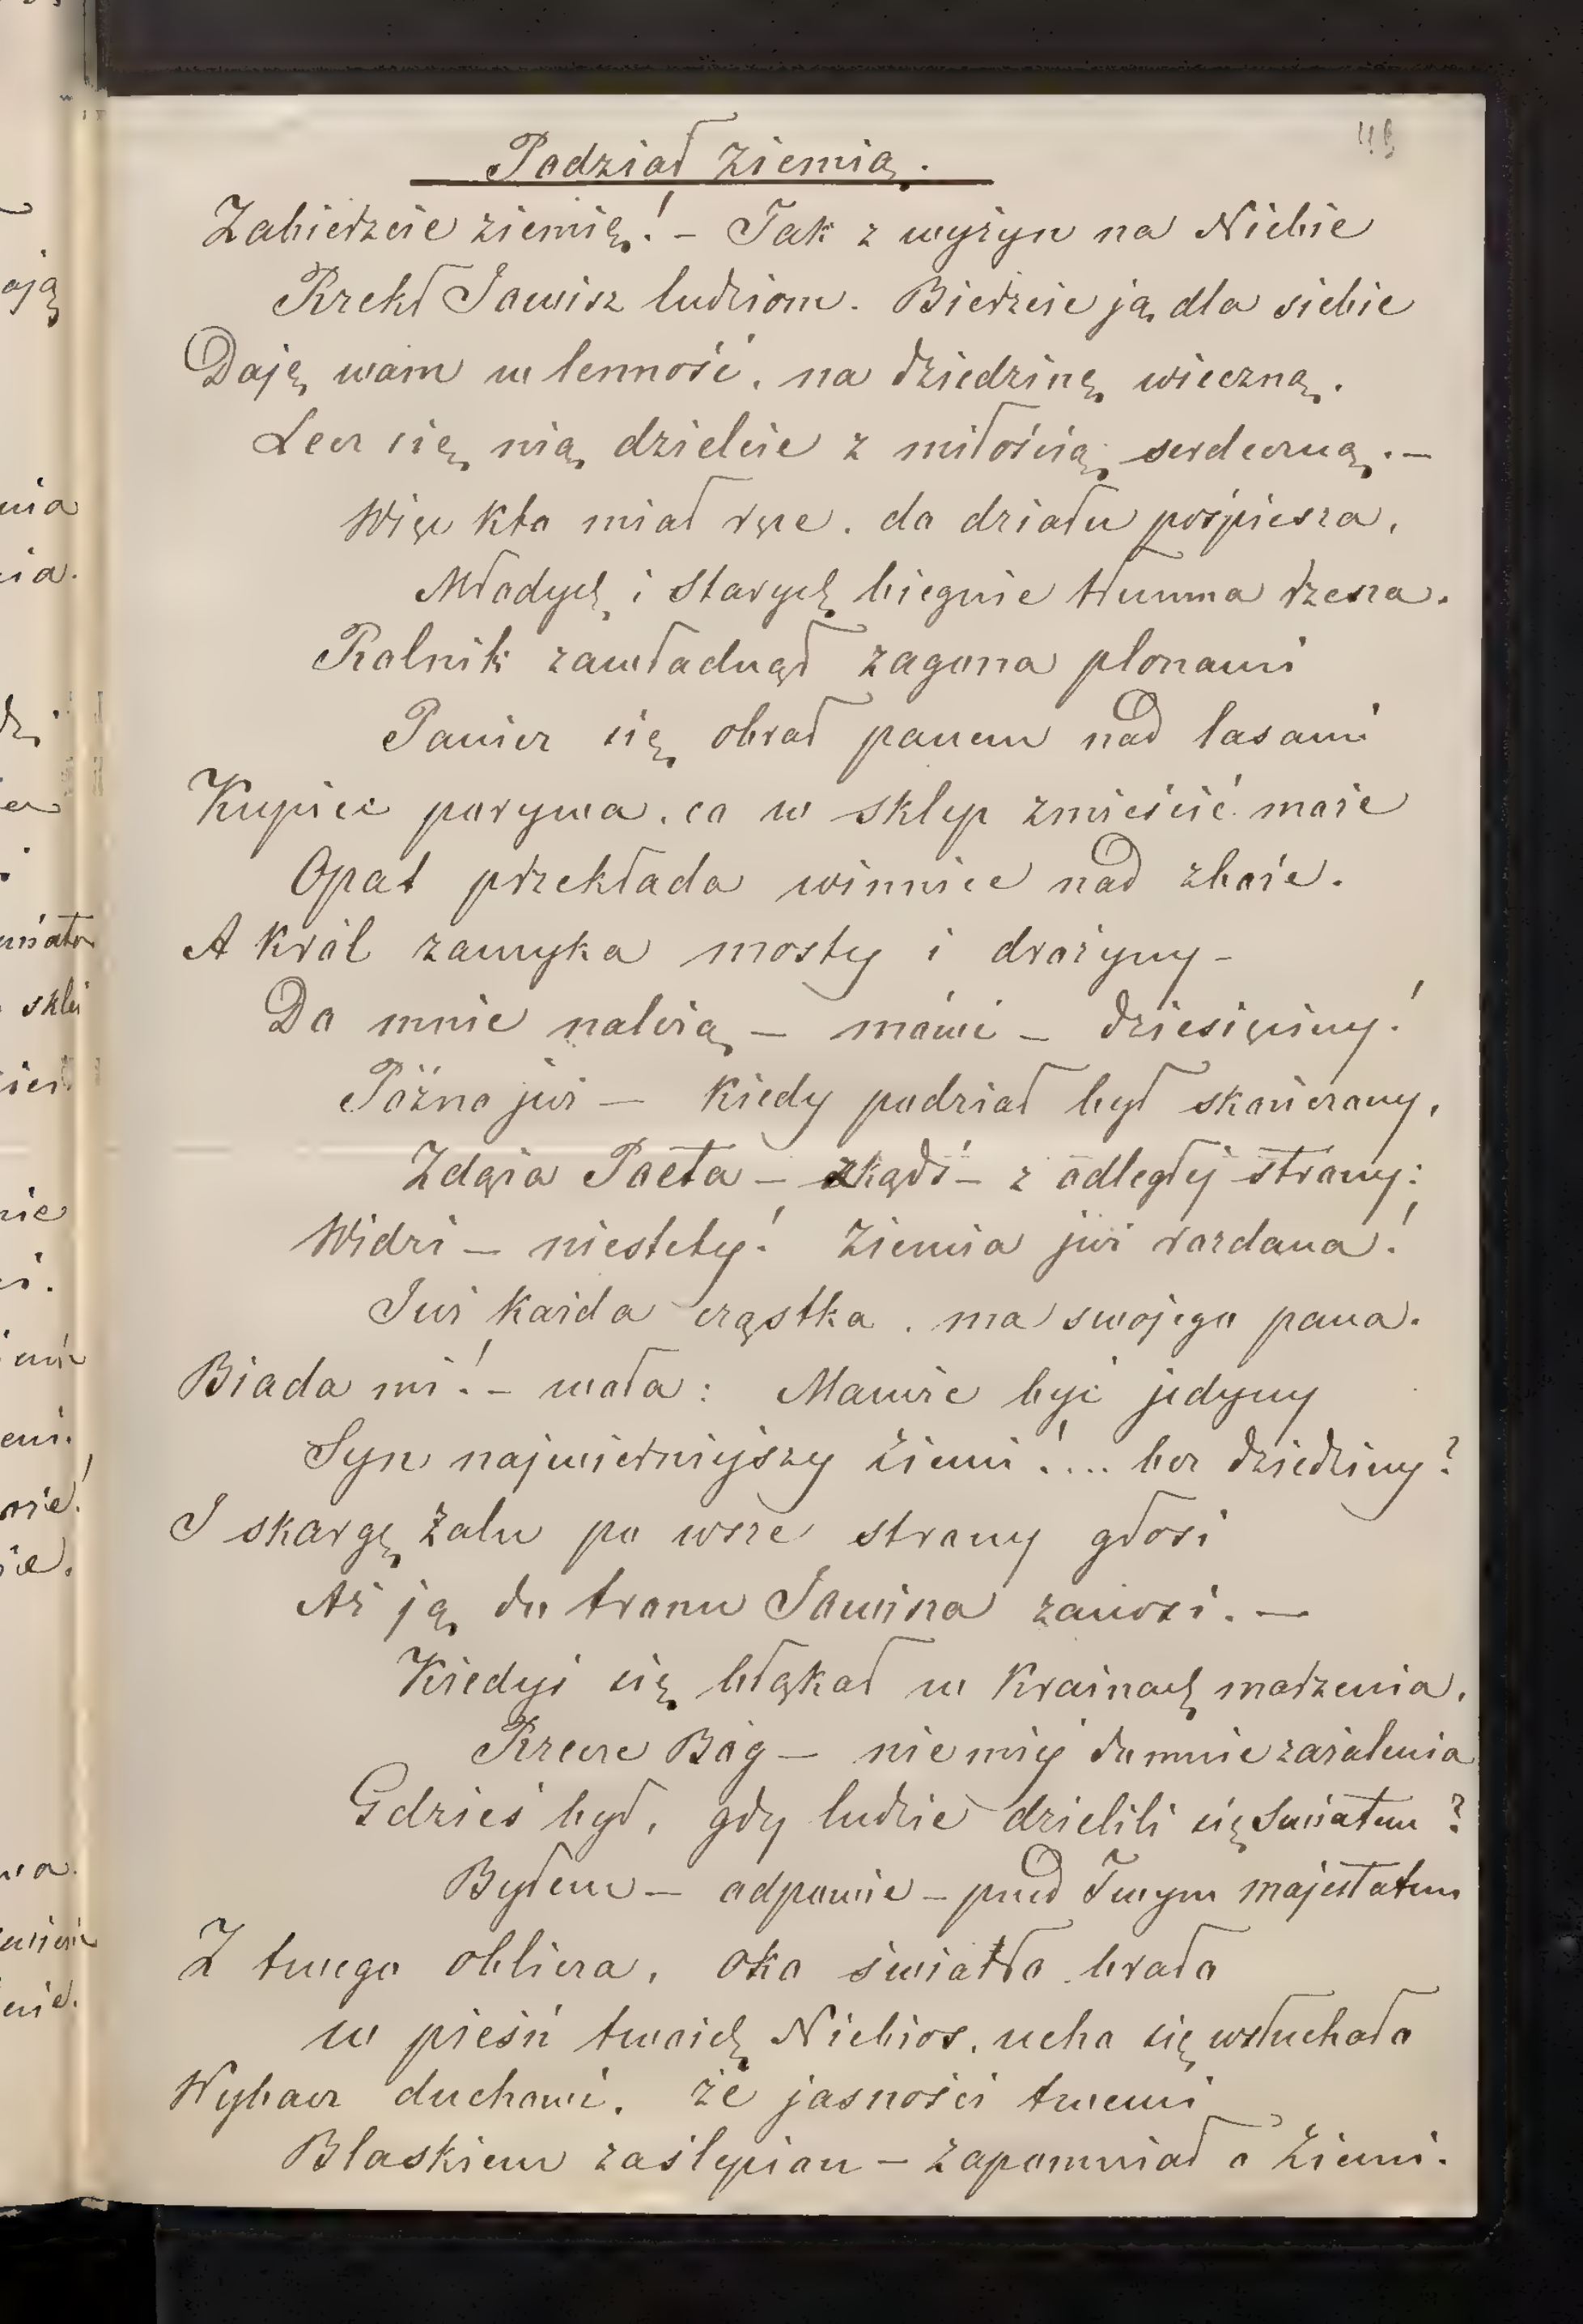 48
Podział Ziemią.
Zabierzcie ziemię! – Tak z wyżyn na Niebie
Rzekł Jowisz ludziom. Bierzcie ją dla siebie
Daję wam w lenność, na dziedzinę wieczną.
Lecz się nią dzielcie z miłością serdeczną. –
Więc kto miał ręce, do działu pośpiesza,
Młodych i Starych biegnie tłumna rzesza.
Rolnik zawładnął zagona plonami
Panicz się obrał panem nad lasami
Kupiec porywa, co w sklep zmieścić może
Opat przekłada winnice nad zboże.
A Król zamyka mosty i drożyny –
Do mnie należą – mówi – dziesięciny!
Późno już – Kiedy podział był skończony,
Zdąża Poeta – zkądś – z odległej strony:
Widzi – niestety! Ziemia już rozdana!
Już Każda cząstka, ma swojego pana.
Biada mi! – woła: Mamże być jedyny
Syn najwierniejszy Ziemi!... bez dziedziny?
I skargę żalu po wsze strony głosi
Aż ją do tronu Jowisza zanosi. –
Kiedyś się błąkał w Krainach marzenia,
Rzecze Bóg – nie miej do mnie zażalenia
Gdzieś był, gdy ludzie dzielili się Światem?
Byłem – odpowie – przed Twym majestatem
Z twego oblicza, oko światło brało
w pieśń twoich Niebios, ucho się wsłuchało
Wybacz duchowi, że jasności twemi
Blaskiem zaślepion – zapomniał o Ziemi.